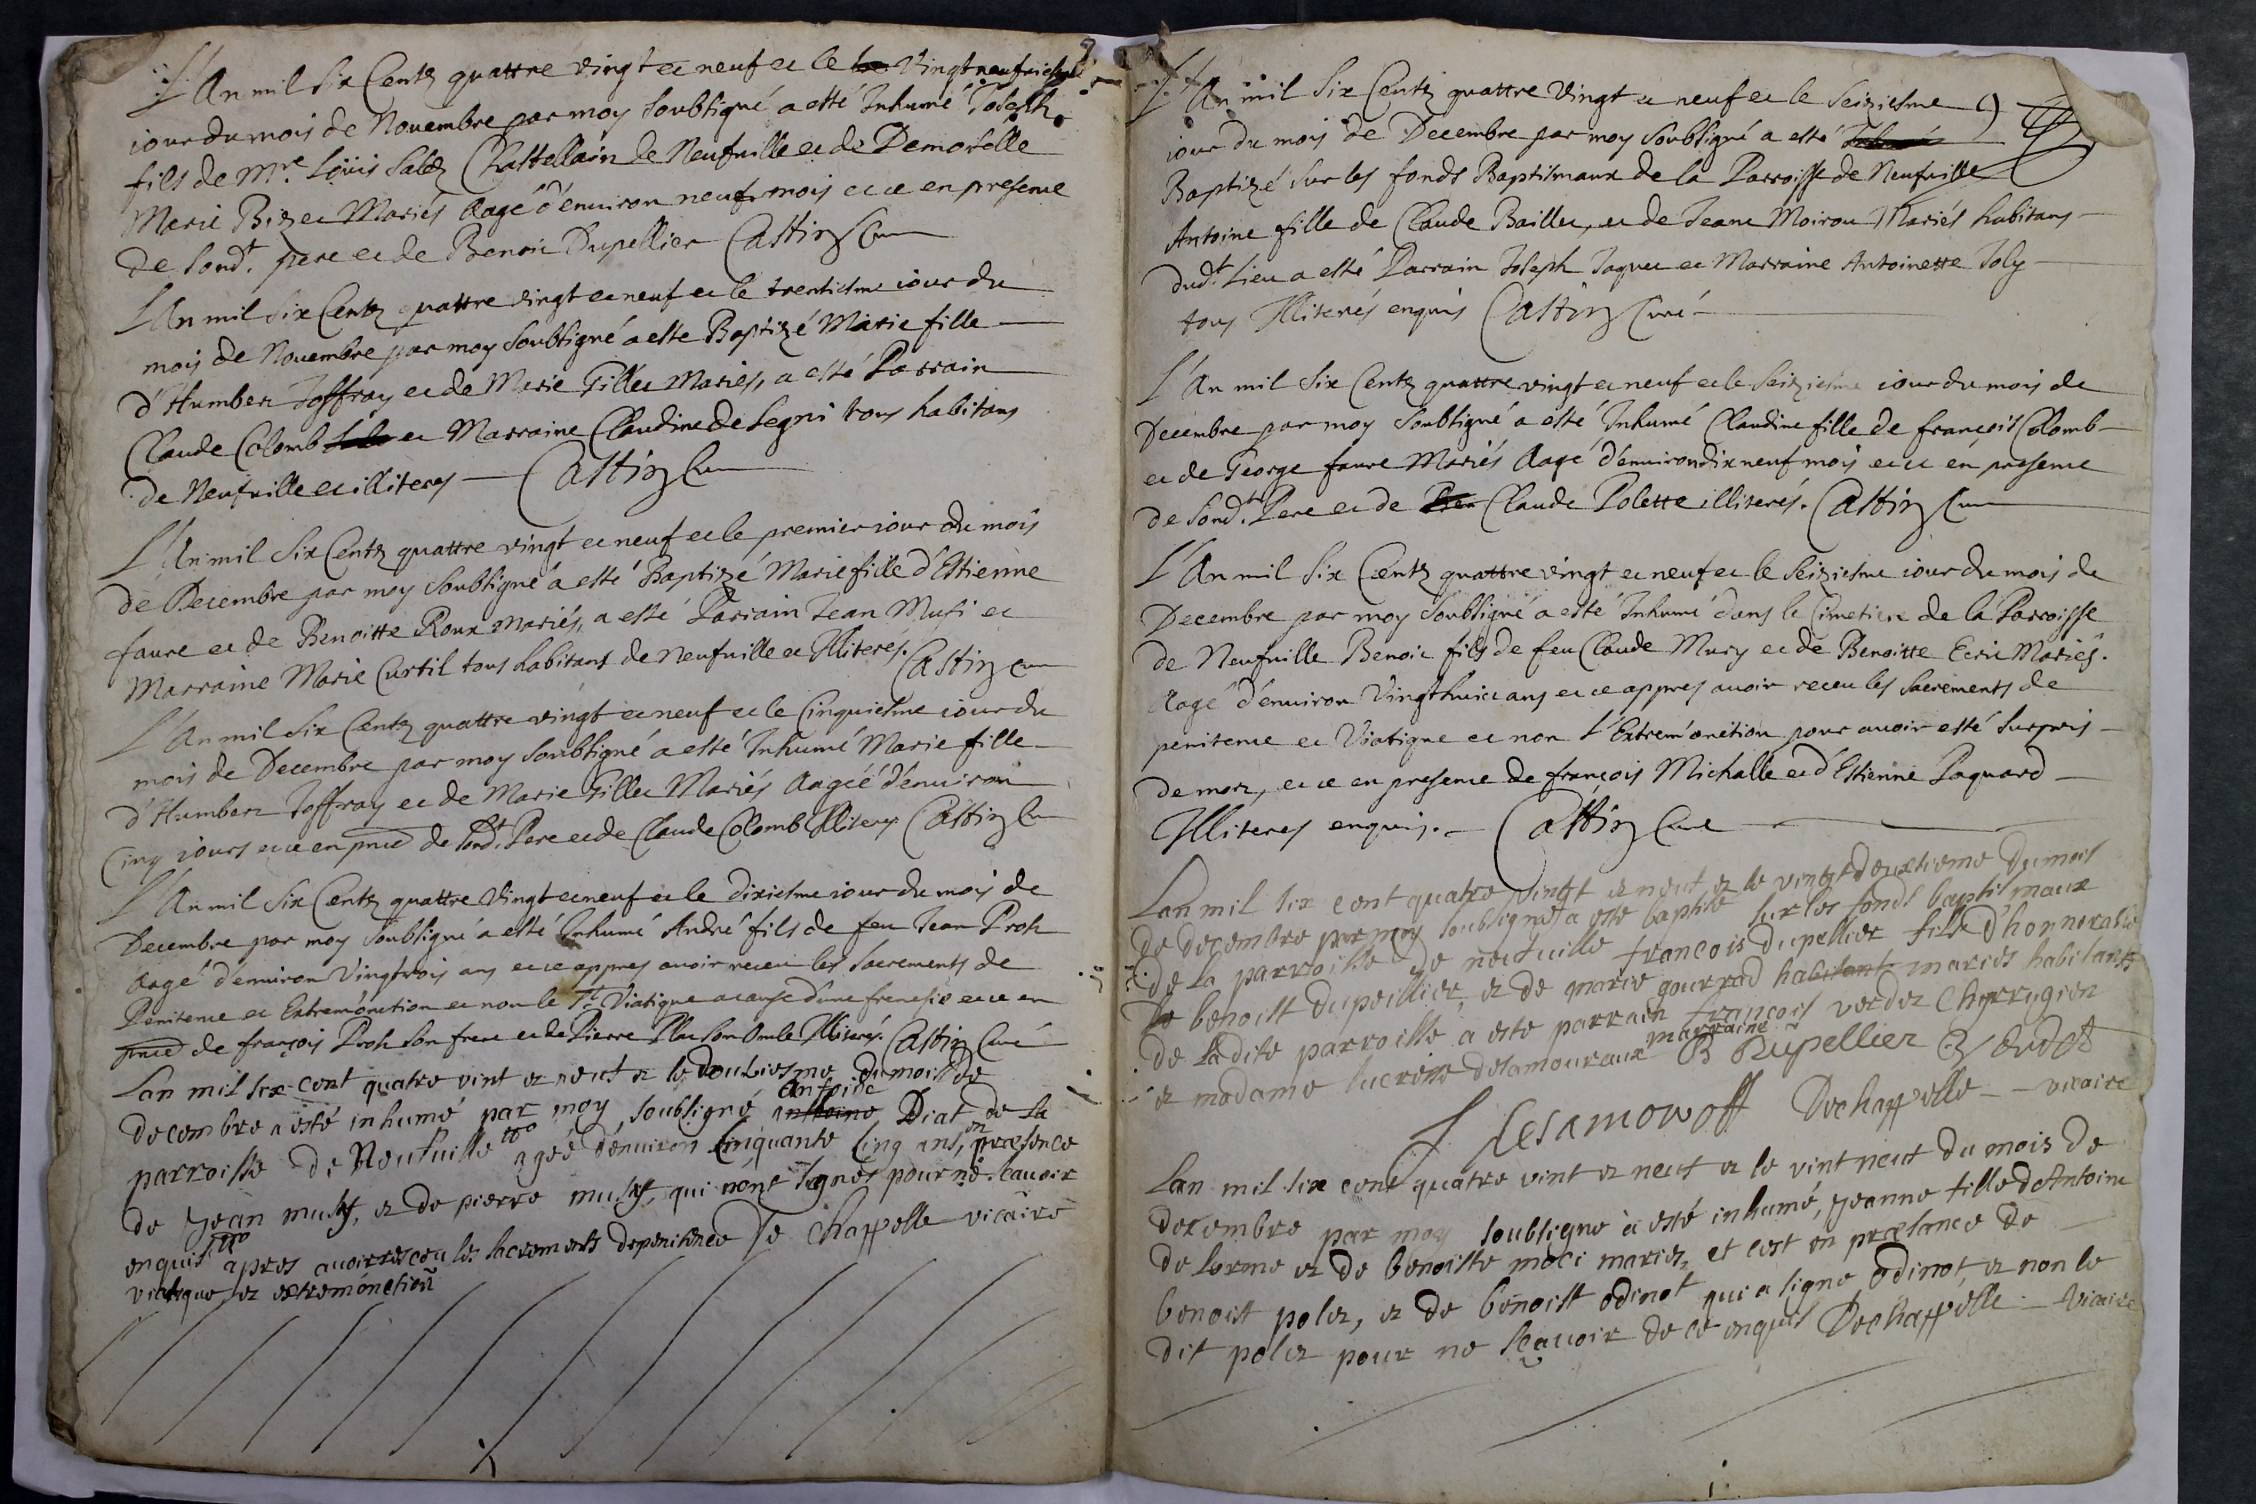 L'An mil Six Centz quattre vingt et neuf et le vingt neufviesme
iour du mois de Nouembre par moy Soubsigné a esté Inhumé Joseph
fils de Mre. Loüis Salez Chastellain de Neufuille et de Demoiselle
Marie Bizet Mariés Aagé d'enuiron neuf mois et ce en presence
de Sond. pere et de Benoit Dupellier Castin Curé
L'An mil Six Centz quattre vingt et neuf et le trentiesme iour du
mois de Nouembre par moy Soubsigné a esté Baptizé Marie fille
d'Humbert Joffray et de Marie Gillet Mariés, a esté Parrain
Claude Colomb et Marraine Claudine de Segni tous habitans
de Neufuille et illiterés Castin Curé
L'An mil Six Centz quattre vingt et neuf et le premier iour du mois
de Decembre par moy Soubsigné a esté Baptizé Marie fille d'Estienne
faure et de Benoitte Roux Mariés, a esté Parrain Jean Musi et
Marraine Marie Curtil tous habitans de Neufuille et Illiterés. Castin Curé
L'An mil Six Centz quattre vingt et neuf et le Cinquiesme iour du
mois de Decembre par moy Soubsigné a esté Inhumé Marie fille
d'Humbert Joffray et de Marie Gillet Mariés Aagéé d'enuiron
Cinq iours et ce en pnce de Sond. Pere et de Claude Colomb Illiterés Castin Curé
L'An mil Six Centz quattre Vingt et neuf et le dixiesme iour du mois de
Decembre par moy Soubsigné a esté Inhumé André fils de feu Jean Prost
Aagé d'enuiron Vingtrois ans et ce appres auoir receu les Sacrements de
Penitence et Extremónction et non le St Viatique a cause d'une frenesie et ce en
pnce de françois Prost Son frere et de Pierre Son Oncle Illiterés. Castin Curé
Lan mil six cent quatre vint et neuf et le douziesme du mois de
decembre a esté inhumé par moy soubsigné antoine Diat de la
parroisse de Neufuille agéé denuiron Cinquante Cinq ans, en præsence
de Jean musy, et de pierre musy, qui nont signés pour ne scauoir
enquis apres auoir resceu les sacrements de penitence De Chappelle vicaire
viatique et extremónction
L'An mil Six Centz quattre Vingt et neuf et le Seiziesme
iour du mois de Decembre par moy Soubsigné a esté
Baptizé Sur les fonds Baptismaux de la Parroisse de Neufuille
Antoine fille de Claude Baillet, et de Jeane Moirou Mariés habitans
dud. Lieu a esté Parrain Joseph Jaquet et Marraine Antoinette Joly
tous Illiterés enquis Castin Curé
L'An mil Six Centz quattre vingt et neuf et le Seiziesme iour du mois de
Decembre par moy Soubsigné a esté Inhumé Claudine fille de françois Colomb
et de George faure Mariés Aagé d'enuiron dixneuf mois et ce en presence
de Sond. Pere et de Claude Polette illiterés. Castin Curé
L'An mil Six Centz quattre vingt et neuf et le Seiziesme iour du mois de
Decembre par moy Soubsigné a esté Inhumé dans le Cimetiere de la Parroisse
de Neufuille Benoit fils de feu Claude Mury et de Benoitte Mariés.
Aagé d'enuiron Vingthuict ans et ce appres auoir receu les Sacrements de
penitence et Viatique et non l'Extrem'onction pour auoir esté Surpris
de mort, et ce en presence de françois Michalle et d'Estienne Paquard
Illiterés enquis. Castin Curé
Lan mil six cent quatre vingt et neuf et le vingt deuxiéme du mois
de decembre par moy soubsigné a este baptisé sur les fonds baptismaux
de la parroisse de neufuille francois dupellier fils d'honnorable
benoist dupeillier, et de marie gourrad habitant mariés habitants
de ladite parroisse a esté parrain françois verdet Chyrrygien
et madame lucresse desamoureaux marraine B Dupellier Verdet
L Lesamowoff Dechappelle vicaire
Lan mil six cent quatre vint et neuf et le vint neuf du mois de
decembre par moy soubsigné à esté inhumé, Jeanne fille dAntoine
de lorme et de benoiste moci mariez, et cest en præsance de
benoist polet, et de benoist odinot qui a signe odinot, et non le
dit polet pour ne scauoir de ce enquis Dechappelle vicaire